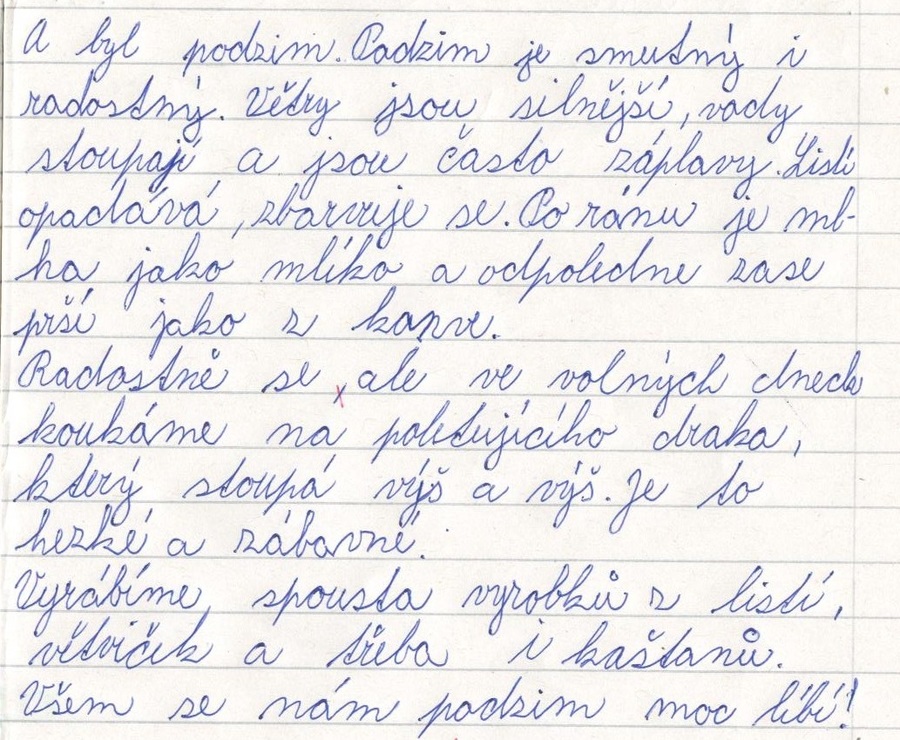 A byl podzim. Podzim je smutný i
radostný. Větry jsou silnější, vody
stoupají a jsou často záplavy. Listí
opadává, zbarvuje se. Po ránu je ml-
ha jako mlíko a odpoledne zase
prší jako z konve.
Radostně se ale ve volných dnech
koukáme na poletujícího draka,
který stoupá výš a výš. Je to
hezké a zábavné.
Vyrábíme spousta vyrobků z listí,
větviček a třeba i kaštanů.
Všem se nám podzim moc líbí!